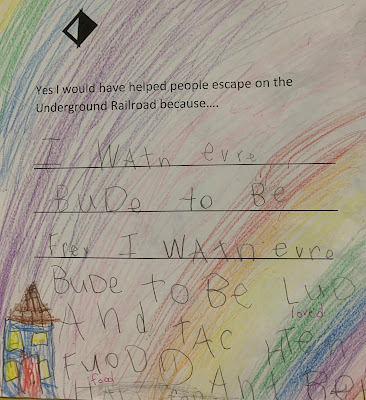 Yes I would have helped people escape on the
Underground Railroad because....
I WAtn evre
BuDe to Be
Frey I WAtn evre
BuDe to Be LuD
loved
And tAC
FuoDD
food
And Be